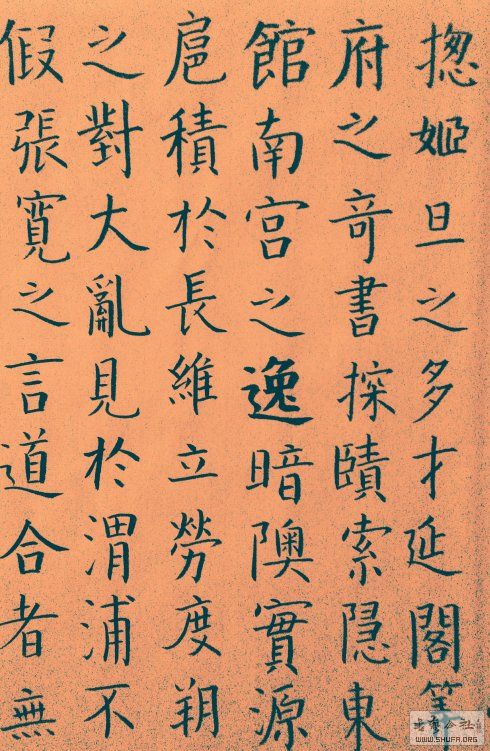 揔姬旦之多才延閣
府之竒書探賾索隱東
館南宮之逸暗隩實源
扈積於長維立勞度朔
之對大亂見於渭浦不
假張寬之言道合者無
书艺公社
WWW.SHUFA.ORG